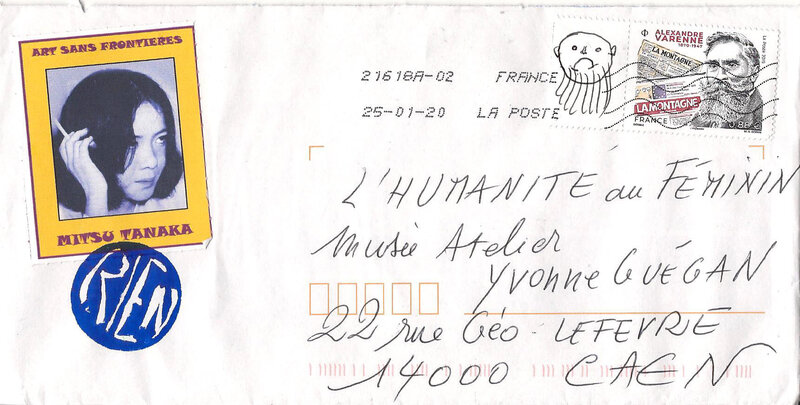 ART SANS FRONTIERES
MITSU TANAKA
RIEN
21618A-02 FRANCE
25-01-20 LA POSTE
ALEXANDRE
VARENNE
1870-1947
LA MONTAGNE
LA MONTAGNE
FRANCE
L'HUMANITÉ au FÉMININ
Musée Atelier
Yvonne GUÉGAN
22 rue Géo-LEFEVRE
14000 CAEN